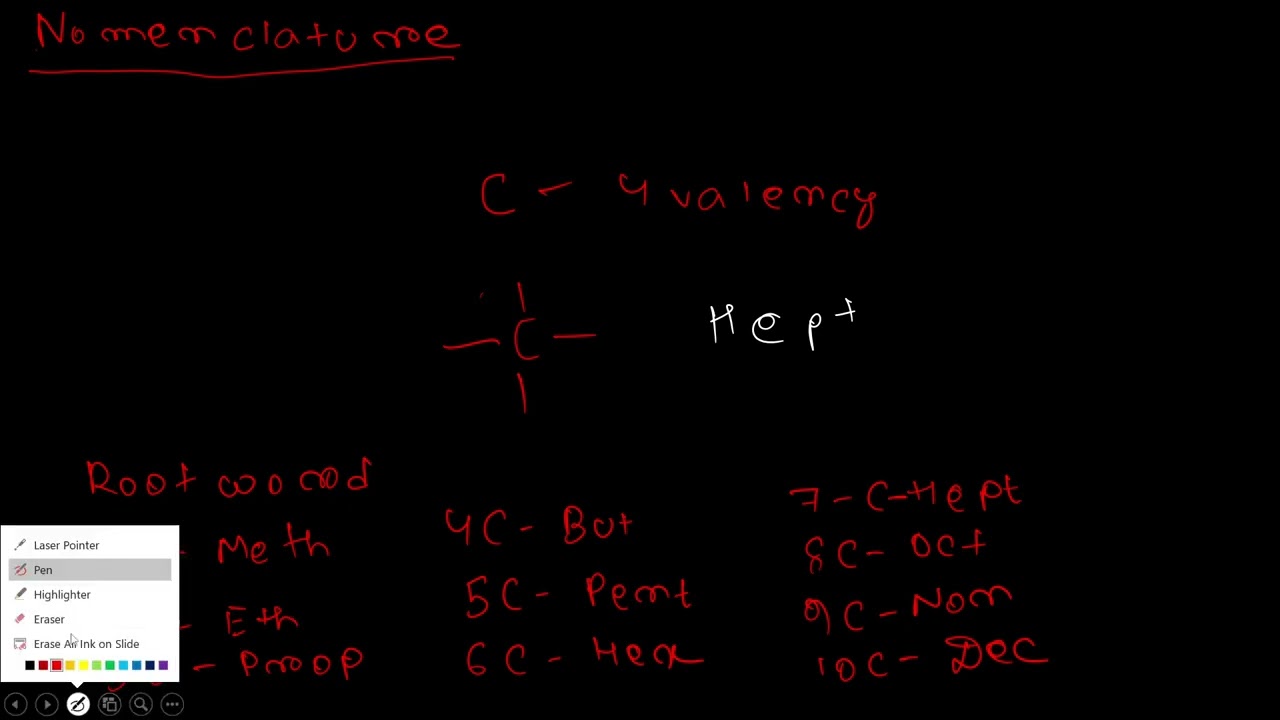 Nomenclature
C - 4 valency
C
Hept
Root word
Meth
Eth
Prop
4C - But
5C - Pent
6C - Hex
7 - C - Hept
8C - Oct
9C - Non
10C - Dec
Laser Pointer
Pen
Highlighter
Eraser
Erase All Ink on Slide